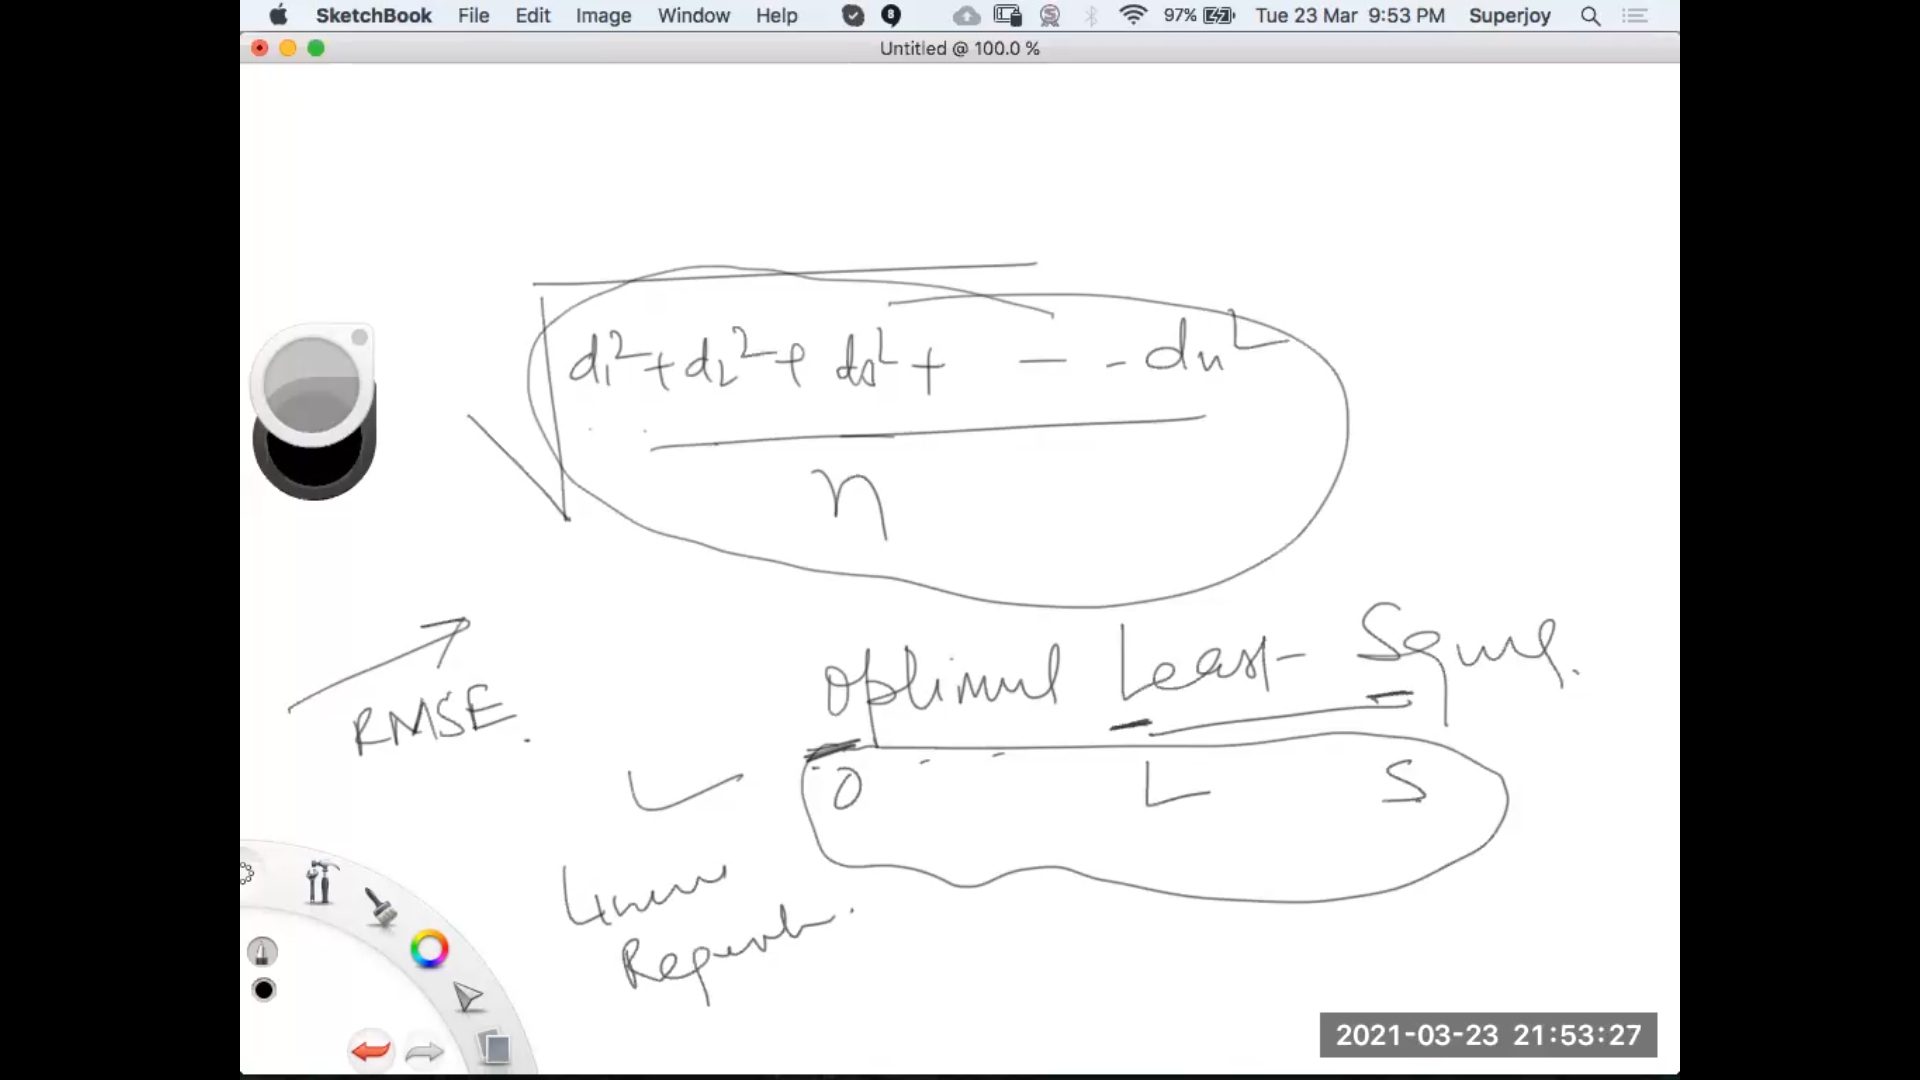 SketchBook File Edit Image Window Help 8 S 97% Tue 23 Mar 9:53 PM Superjoy
Untitled @ 100.0 %
√ d₁² + d₂² + d₃² + — - dn²
n
Optimul Least- Square.
RMSE.
O L S
Linear
Regression.
2021-03-23 21:53:27